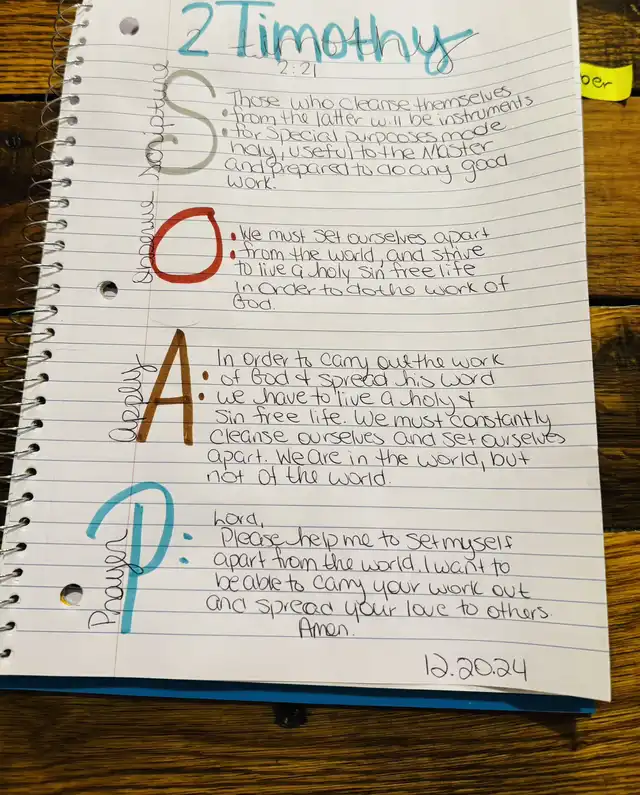 2 Timothy
2:21
Scripture
S: Those who cleanse themselves
from the latter will be instruments
for special purposes made
holy, useful to the Master
and prepared to do any good
work.
Observe
O: We must set ourselves apart
from the world, and strive
to live a holy sin free life
in order to do the work of
God.
Apply
A: In order to carry out the work
of God & spread his word
we have to live a holy &
sin free life. We must constantly
cleanse ourselves and set ourselves
apart. We are in the world, but
not of the world.
Prayer
P: Lord,
Please help me to set myself
apart from the world. I want to
be able to carry your work out
and spread your love to others.
Amen.
12.20.24
per